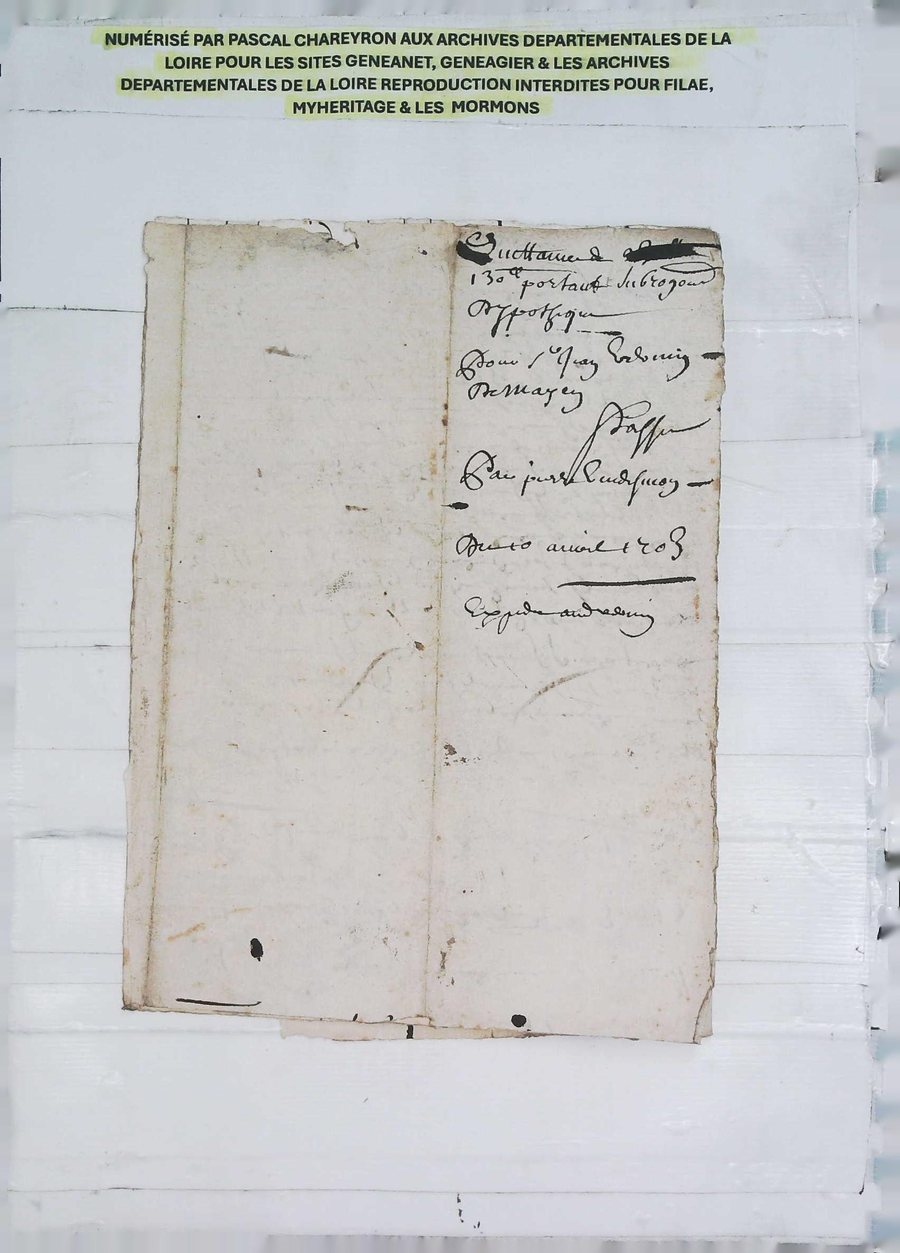 NUMÉRISÉ PAR PASCAL CHAREYRON AUX ARCHIVES DEPARTEMENTALES DE LA
LOIRE POUR LES SITES GENEANET, GENEAGIER & LES ARCHIVES
DEPARTEMENTALES DE LA LOIRE REPRODUCTION INTERDITES POUR FILAE,
MYHERITAGE & LES MORMONS
Quittance de
130ll portant subrogaon
D'ypothique
Pour sr Jean
De Mayen
Passee
Par pierre
Du 10 avril 1703